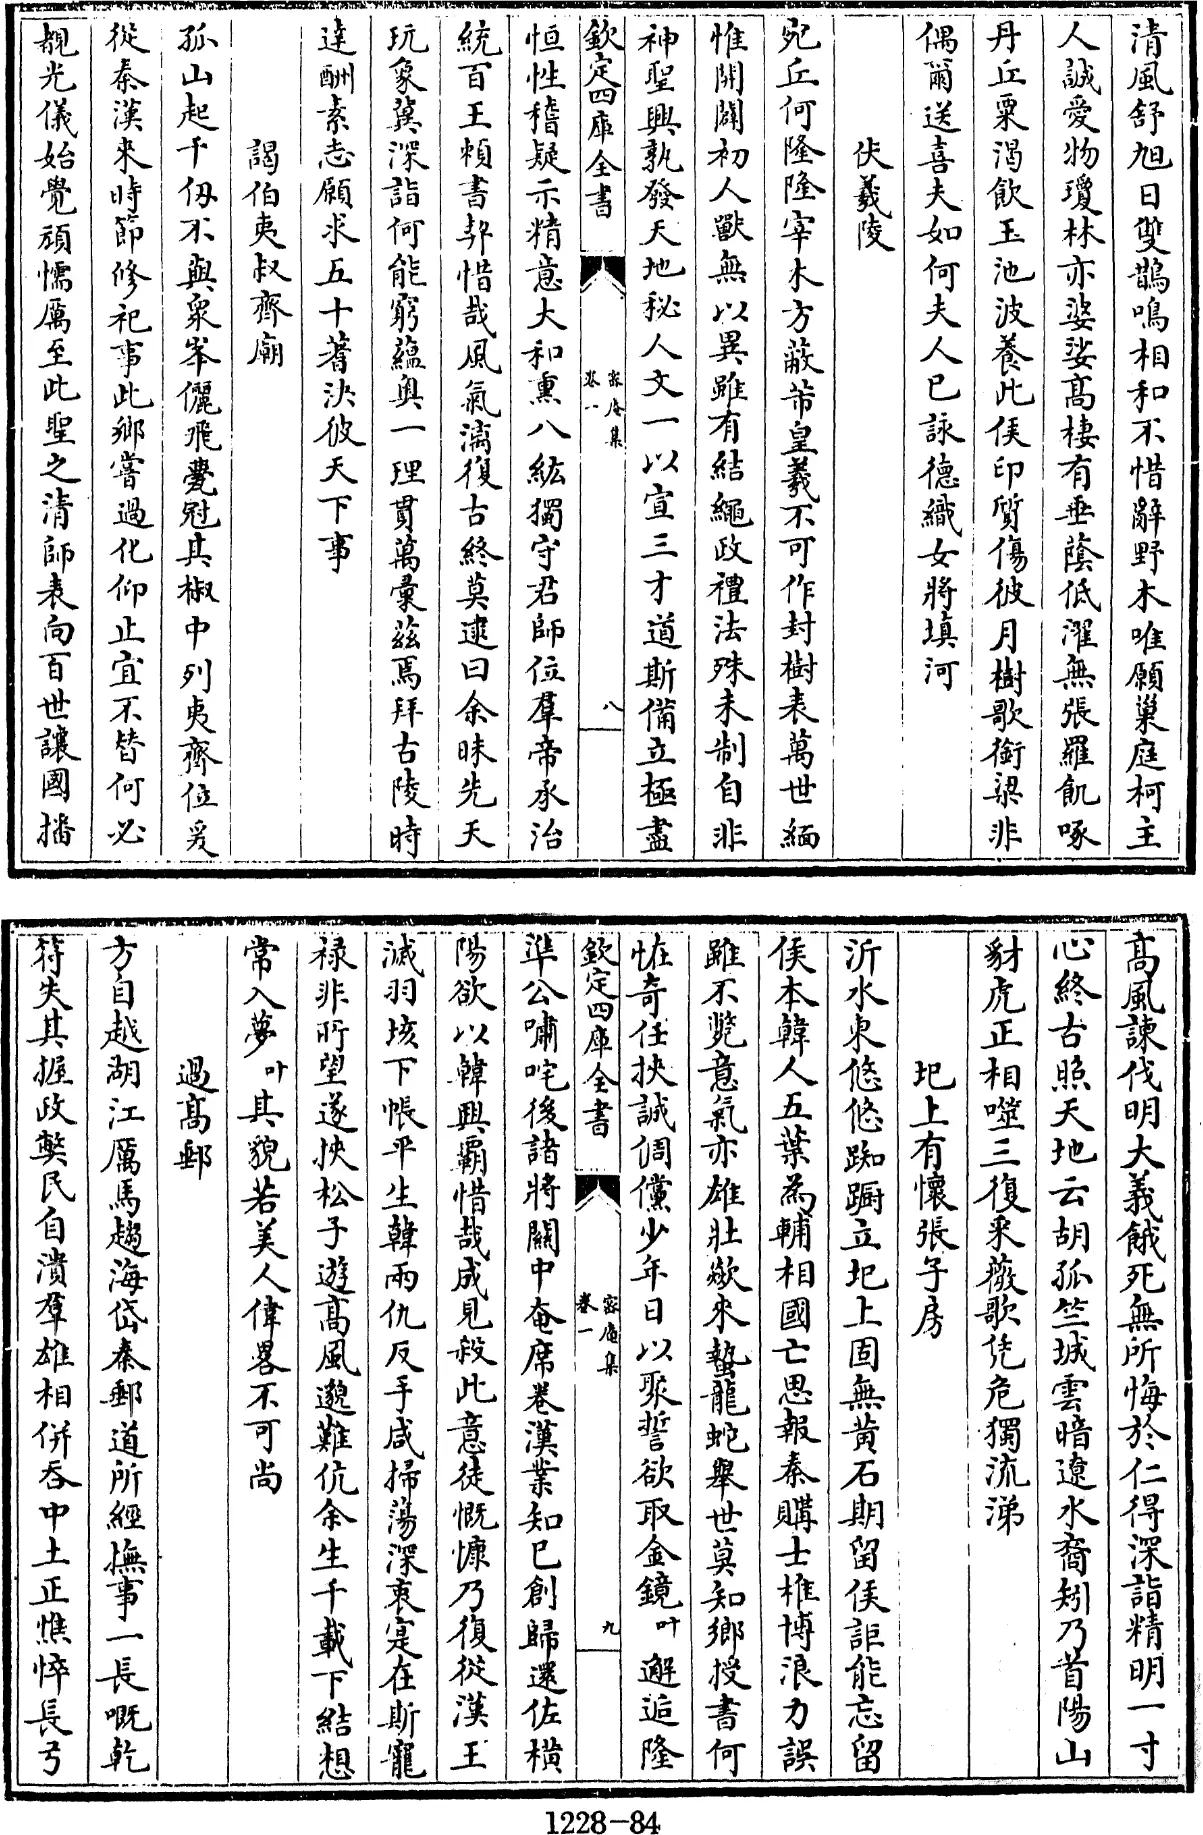 清風舒旭日雙鵲鳴相和不惜辭野木唯願巢庭柯主
人誠愛物瓊林亦婆娑高棲有垂蔭低濯無張羅飢啄
丹丘粟渴飲玉池波養此侯印質傷彼月樹歌銜梁非
偶爾送喜夫如何夫人已詠德織女將填河
伏羲陵
宛丘何隆隆宰木方蔽芾皇羲不可作封樹表萬世緬
惟開闢初人獸無以異雖有結繩政禮法殊未制自非
神聖興孰發天地秘人文一以宣三才道斯備立極盡
欽定四庫全書
密庵集
卷一
八
恒性稽疑示精意大和熏八紘獨守君師位羣帝承治
統百王賴書契惜哉風氣漓復古終莫逮曰余昧先天
玩象冀深詣何能窮蘊奥一理貫萬彙兹焉拜古陵時
達酬素志願求五十蓍決彼天下事
謁伯夷叔齊廟
孤山起千仭不與衆峯儷飛甍冠其椒中列夷齊位爰
從秦漢來時節修祀事此鄉嘗過化仰止宜不替何必
覩光儀始覺頑懦厲至此聖之清師表向百世讓國播
高風諫伐明大義餓死無所悔於仁得深詣精明一寸
心終古照天地云胡孤竺城雲暗遼水裔矧乃首陽山
豺虎正相噬三復采薇歌凭危獨流涕
圯上有懷張子房
沂水東悠悠踟蹰立圯上固無黄石期留侯詎能忘留
侯本韓人五葉為輔相國亡思報秦購士椎博浪力誤
雖不斃意氣亦雄壯歘來蟄龍蛇舉世莫知鄉授書何
恠奇任挾誠倜儻少年日以聚誓欲取金鏡叶邂逅隆
欽定四庫全書
密庵集
卷一
九
準公嘯咤後諸將關中奄席卷漢業知已創歸還佐橫
陽欲以韓興霸惜哉成見殺此意徒慨慷乃復從漢王
滅羽垓下帳平生韓兩仇反手咸掃蕩深衷寔在斯寵
祿非所望遂挾松子遊高風邈難伉余生千載下結想
常入夢叶其貌若美人偉畧不可尚
過高郵
方自越湖江厲馬趨海岱秦郵道所經撫事一長嘅乾
符失其握政獘民自潰羣雄相併吞中土正憔悴長弓
1228-84